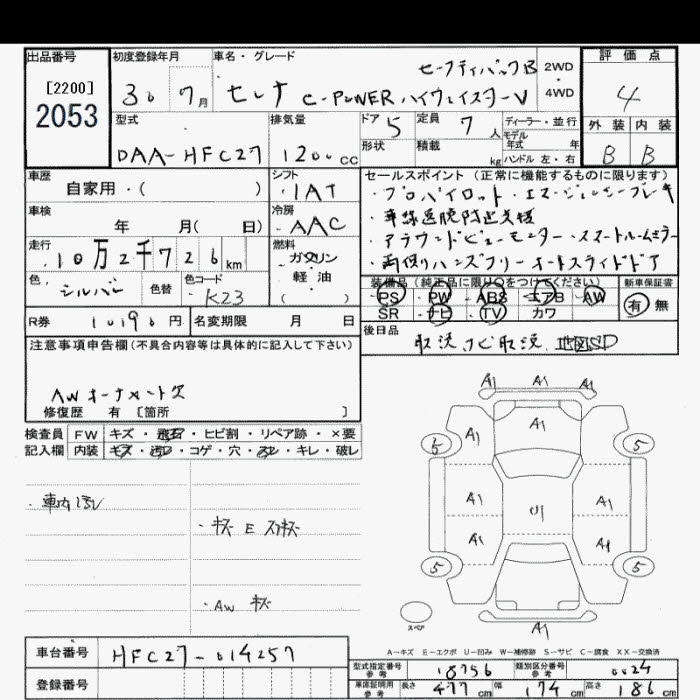 出品番号
[2200]
2053
初度登録年月
30 7月
車名・グレード
セーフティパックB
セレナ e-POWER ハイウェイスターV
2WD
・
4WD
評価点
4
外装 内装
B B
型式
DAA-HFC27
排気量
1200cc
ドア 5
定員 7人
ディーラー・並行
モデル
年式 年
形状
積載 kg
ハンドル 左・右
車歴
自家用・( )
シフト
IAT
車検
年 月( 日)
冷房
AAC
走行
10万2千726km
燃料
ガソリン
・
軽油
( )
色
シルバー
色替
色コード
K23
R券 10190円
名変期限 月 日
セールスポイント (正常に機能するものに限ります)
・プロパイロット・エマージェンシーブレーキ
・車線逸脱防止支援
・アラウンドビューモニター・スマートルームミラー
・両側ハンズフリーオートスライドドア
装備品(純正品に限り○をつけてください)
PS PW ABS エアB AW
SR ナビ TV カワ
新車保証書
有 無
後日品
取説 ナビ取説 地図SD
注意事項申告欄(不具合内容等は具体的に記入して下さい)
AWオーナメント欠
修復歴 有 [箇所 ]
検査員 FW キズ・飛石・ヒビ割・リペア跡・×要
記入欄 内装 キズ・汚レ・コゲ・穴・スレ・キレ・破レ
・車内汚レ
・キズ E スリキズ
・AW キズ
A1 A1 A1
A1 A1
5 5
A1 A1
U1
A1 A1
5 5
スペア
A1
A-キズ E-エクボ U-凹み W-補修跡 S-サビ C-腐食 XX-交換済
車台番号 HFC27-014257
登録番号
型式指定番号
参考
18756
類別区分番号
参考
0024
車庫証明用
参考
長さ 477cm 幅 174cm 高さ 186cm